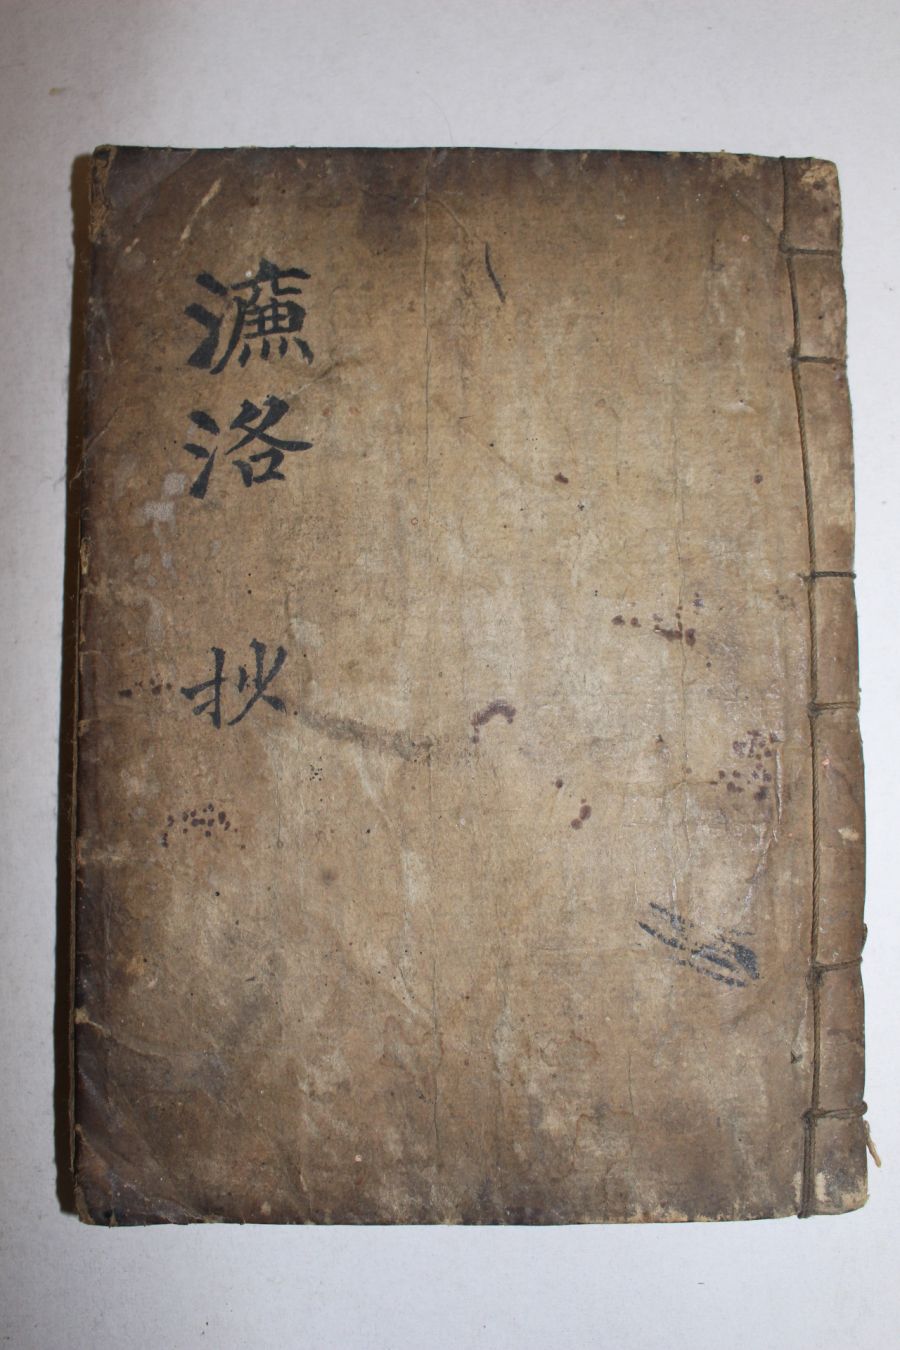 濂洛 抄